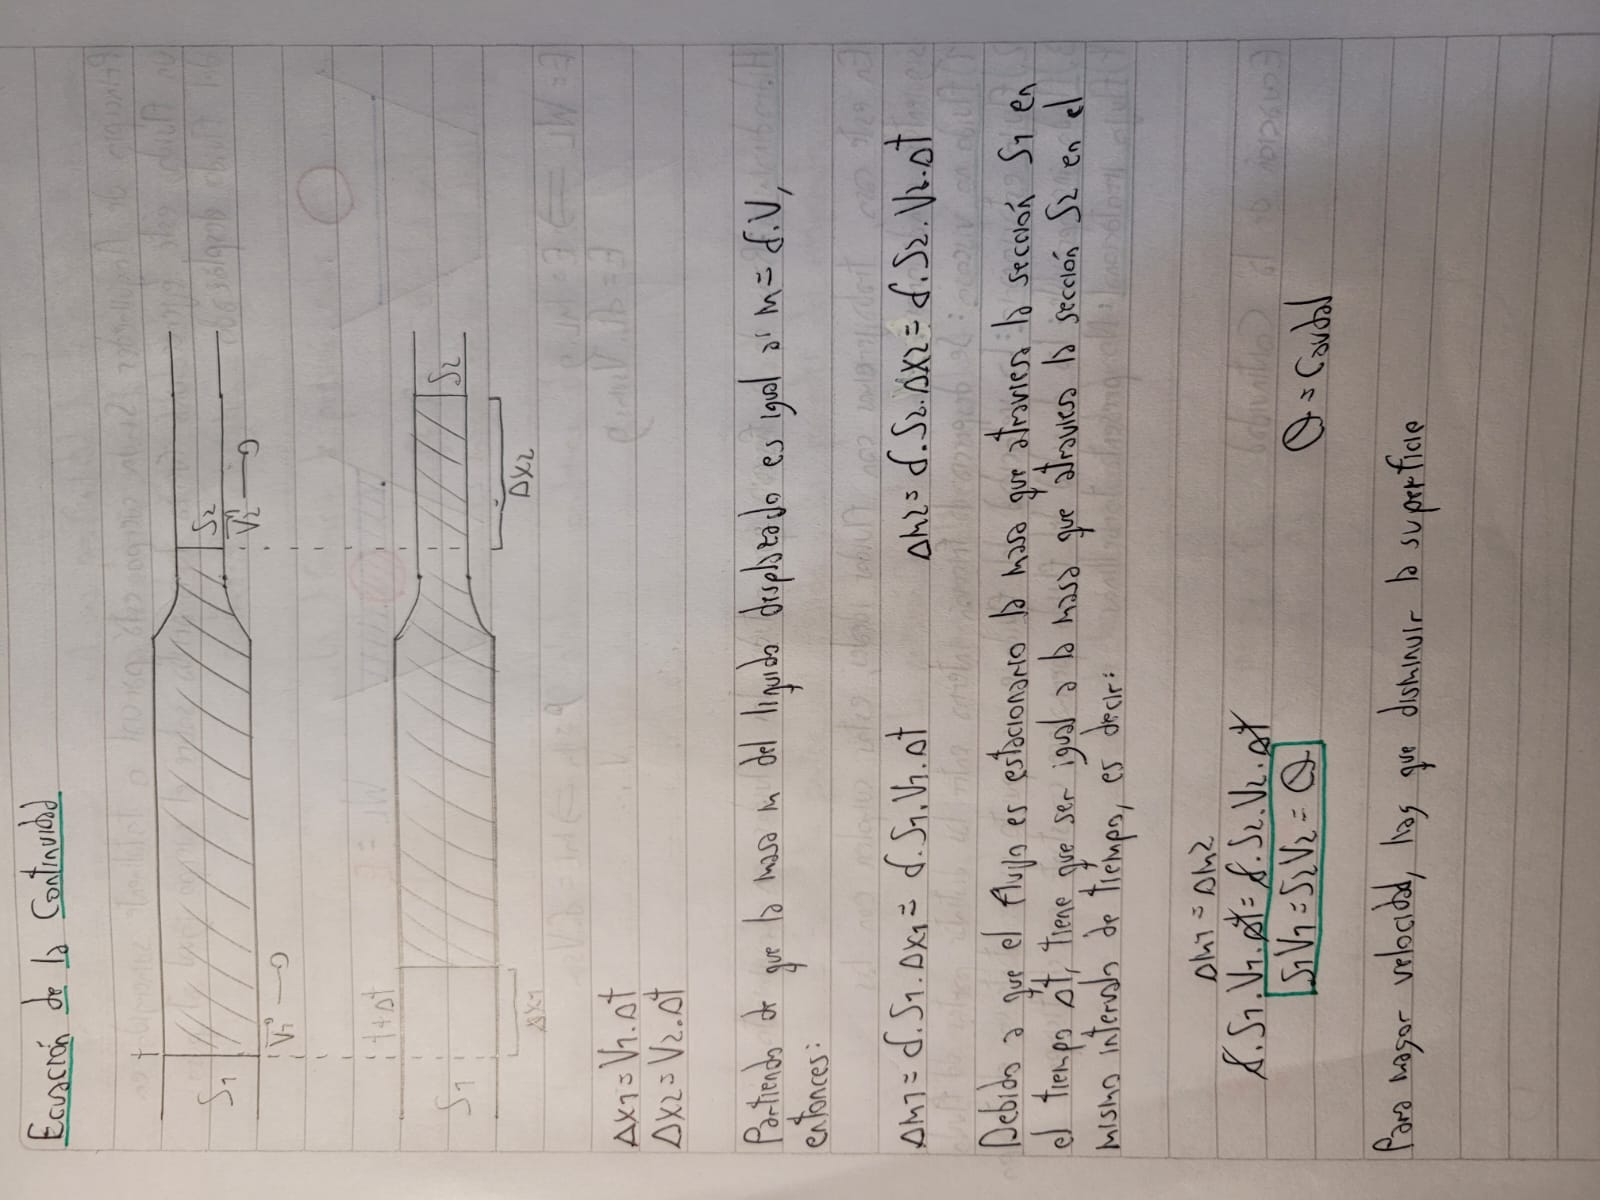 Ecuación de la Continuidad
t
S1
S2
V1
V2
t+Δt
S1
S2
Δx1
Δx2
Δx1 = V1.Δt
Δx2 = V2.Δt
Partiendo de que la masa m del líquido desplazado es igual a: m = δ.V,
entonces:
Δm1 = δ.S1.Δx1 = δ.S1.V1.Δt Δm2 = δ.S2.Δx2 = δ.S2.V2.Δt
Debido a que el flujo es estacionario la masa que atraviesa la sección S1 en
el tiempo Δt, tiene que ser igual a la masa que atraviesa la sección S2 en el
mismo intervalo de tiempo, es decir:
Δm1 = Δm2
δ.S1.V1.Δt = δ.S2.V2.Δt
S1V1 = S2V2 = Q
Q = Caudal
Para mayor velocidad, hay que disminuir la superficie